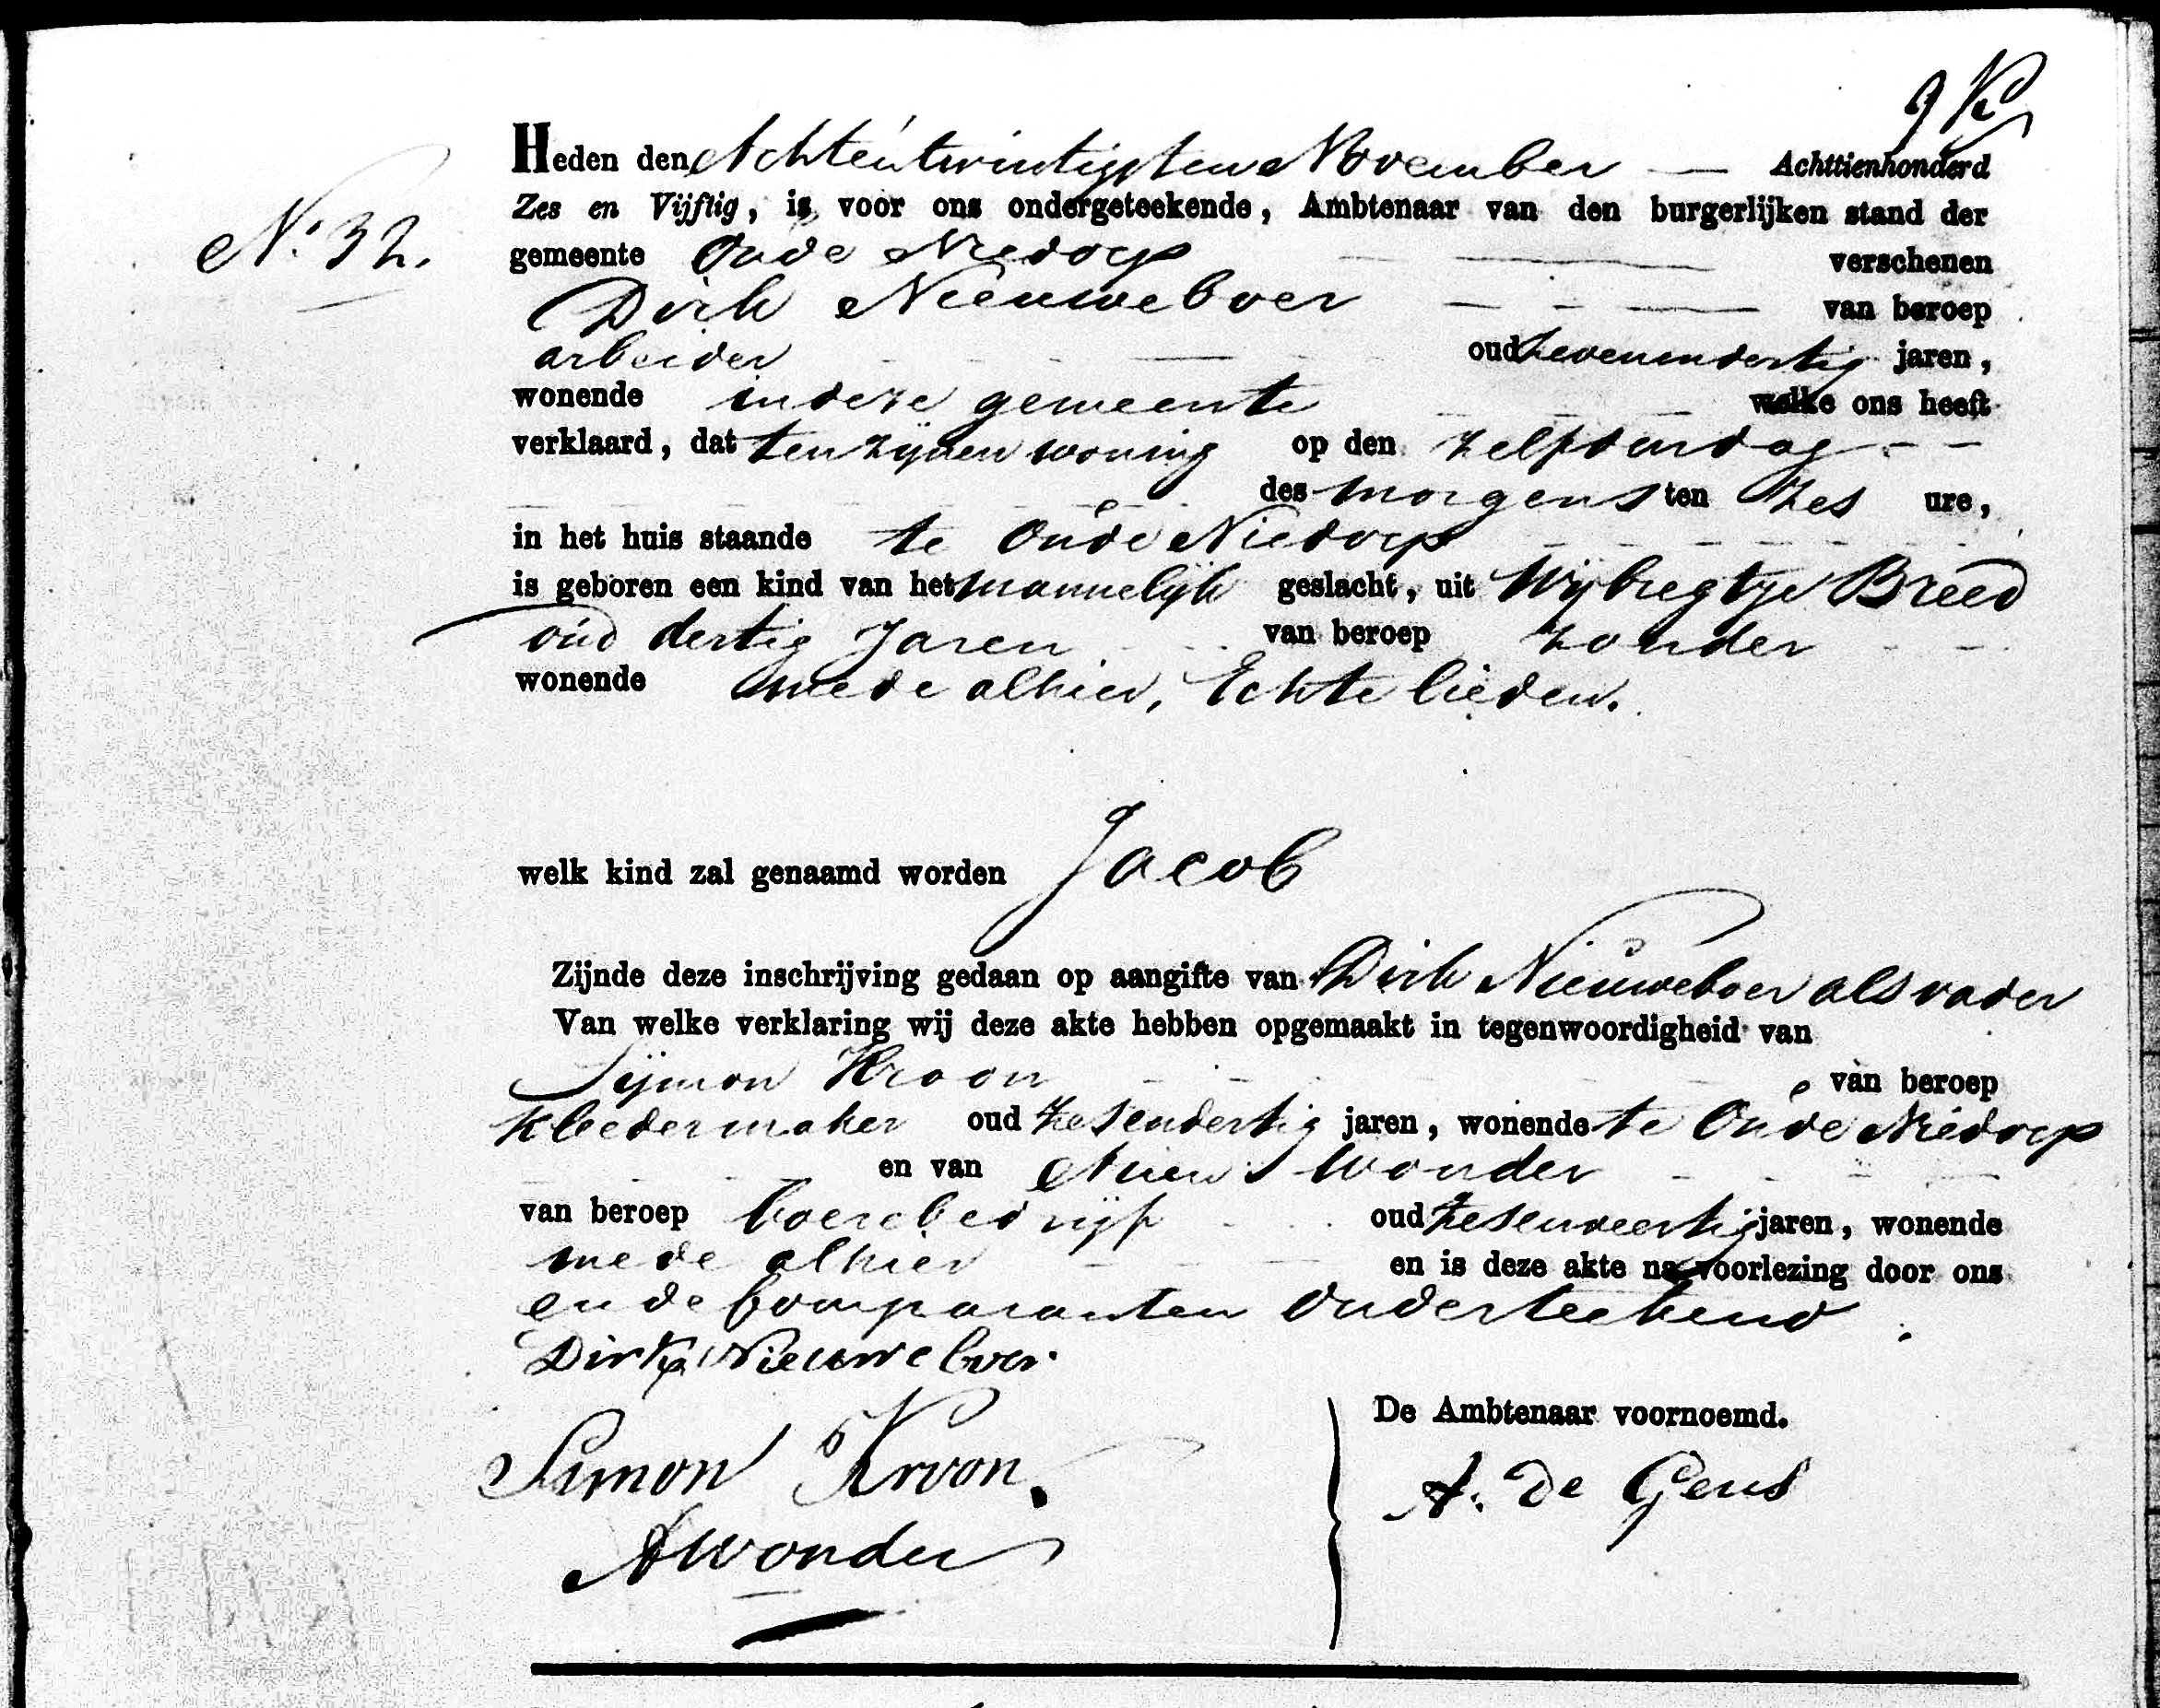 Heden den Achtentwintigsten November — Achttienhonderd
Zes en Vijftig, is voor ons ondergeteekende, Ambtenaar van den burgerlijken stand der
No. 32.
gemeente Oude Niedorp verschenen
Dirk Nieuweboer van beroep
arbeider oud zevenendertig jaren,
wonende in deze gemeente welke ons heeft
verklaard, dat ten zijnen woning op den zelfden dag
des morgens ten zes ure,
in het huis staande te Oude Niedorp
is geboren een kind van het mannelijk geslacht, uit Wijbregtje Breed
oud dertig Jaren van beroep zonder
wonende mede alhier, Echte lieden.
welk kind zal genaamd worden Jacob
Zijnde deze inschrijving gedaan op aangifte van Dirk Nieuweboer als vader
Van welke verklaring wij deze akte hebben opgemaakt in tegenwoordigheid van
Sijmon Kroon van beroep
Kleedermaker oud zesendertig jaren, wonende te Oude Niedorp
en van Wonder
van beroep boerebedrijf oud zesenveertig jaren, wonende
mede alhier en is deze akte na voorlezing door ons
en de Comparanten onderteekend.
Dirk Nieuweboer.
De Ambtenaar voornoemd.
Simon Kroon.
A. De Geus
A Wonder